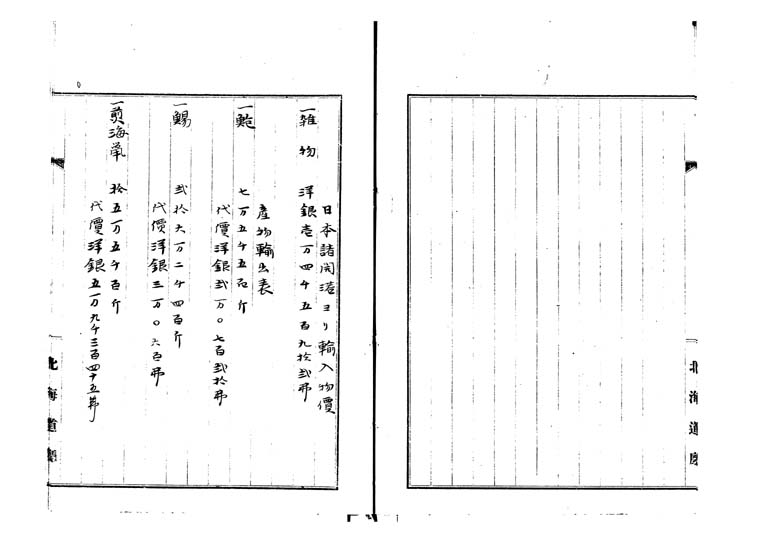 北海道廳
日本諸開港ヨリ輸入物價
一雑物 洋銀壱万四千五百九拾弐弗
産物輸出表
一鮑 七万五千五百斤
代價洋銀弐万〇七百弐拾弗
一鯣 弐拾六万二千四百斤
代價洋銀三万〇六百弗
一煎海鼠 拾五万五千百斤
代價洋銀五万九千三百四十五弗
北海道廳